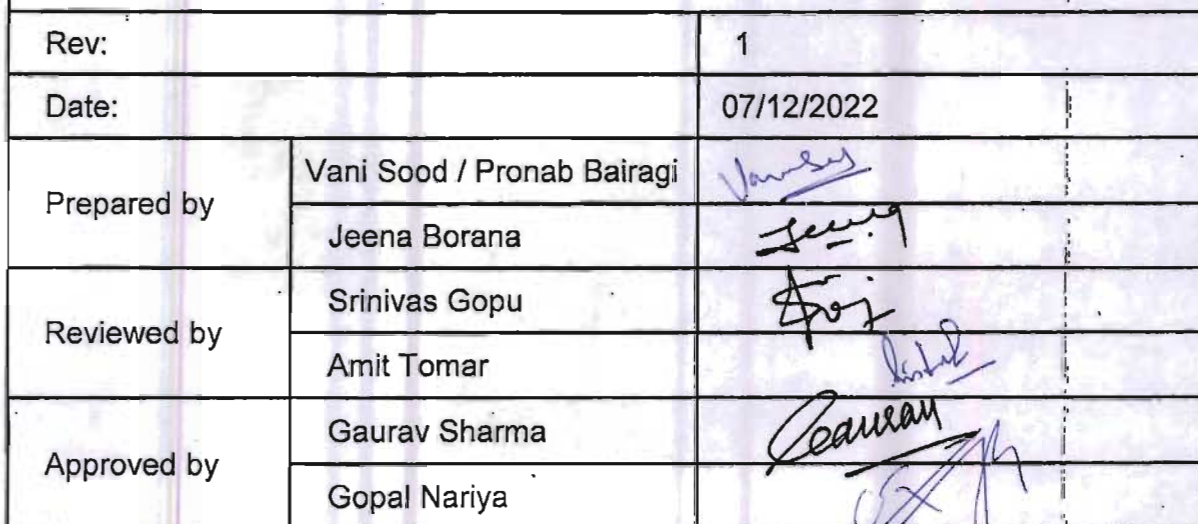 Rev: 1
Date: 07/12/2022
Prepared by
Vani Sood / Pronab Bairagi
Jeena Borana
Jeena
Reviewed by
Srinivas Gopu
Amit Tomar
Approved by
Gaurav Sharma
Gaurav
Gopal Nariya